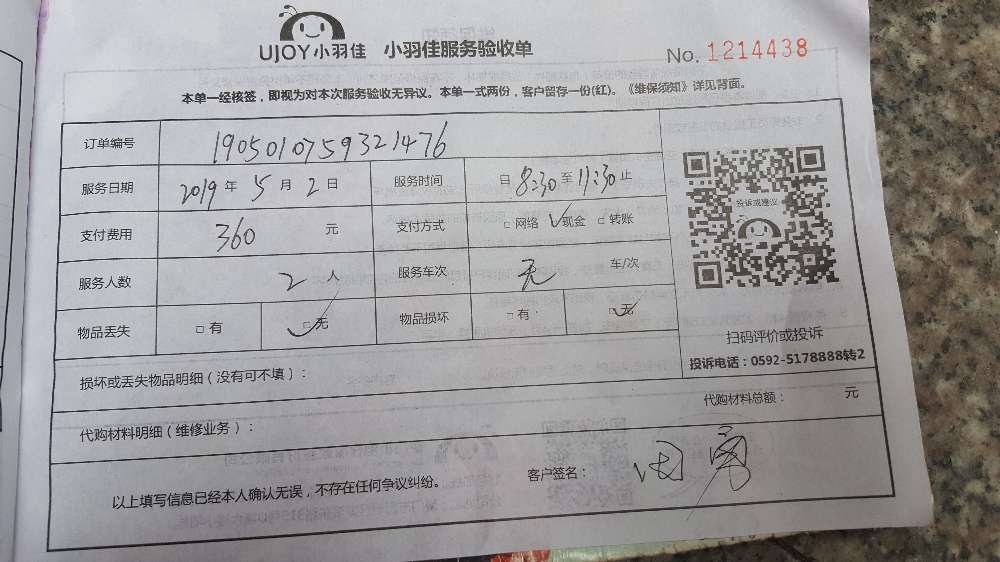 UJOY小羽佳 小羽佳服务验收单
No. 1214438
本单一经核签，即视为对本次服务验收无异议。本单一式两份，客户留存一份(红)。《维保须知》详见背面。
订单编号 1905010759321476
服务日期 2019年5月2日 服务时间 日8:30至11:30止
支付费用 360 元 支付方式 □网络 ✓现金 □转账
服务人数 2人 服务车次 无 车/次
物品丢失 □有 ☑无 物品损坏 □有 ☑无
投诉或建议
扫码评价或投诉
投诉电话：0592-5178888转2
损坏或丢失物品明细（没有可不填）：
代购材料明细（维修业务）： 代购材料总额： 元
以上填写信息已经本人确认无误，不存在任何争议纠纷。 客户签名：